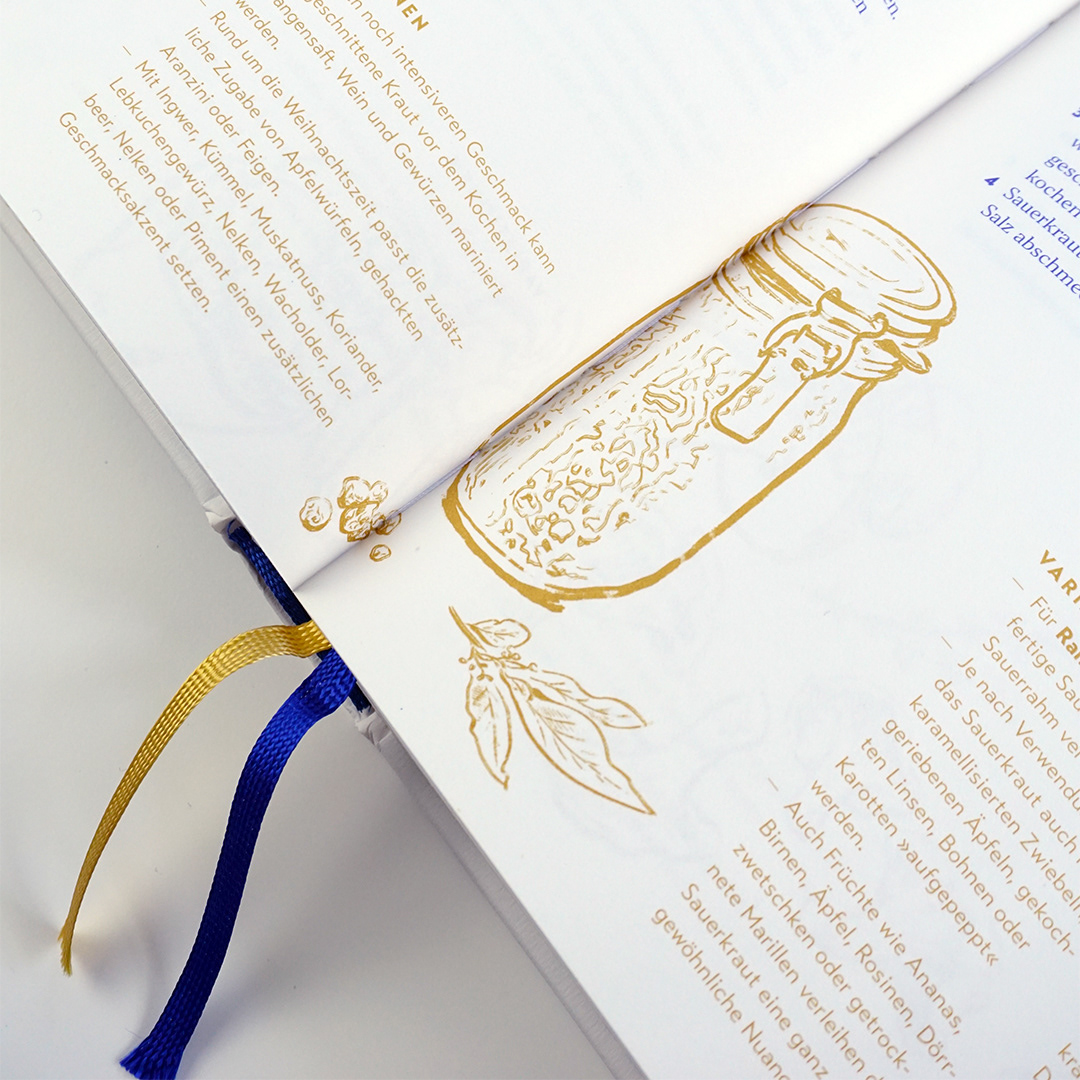 noch intensiveren Geschmack kann
geschnittene Kraut vor dem Kochen in
Wein und Gewürzen mariniert
werden.
– Rund um die Weihnachtszeit passt die zusätz-
liche Zugabe von Apfelwürfeln, gehackten
Aranzini oder Feigen.
– Mit Ingwer, Kümmel, Muskatnuss, Koriander,
Lebkuchengewürz, Nelken, Wacholder, Lor-
beer, Nelken oder Piment einen zusätzlichen
Geschmacksakzent setzen.
kochen
4 Sauerkraut
Salz
– Für
fertige
Sauerrahm
– Je nach
das Sauerkraut auch
karamellisierten Zwiebeln
geriebenen Äpfeln, gekoch-
ten Linsen, Bohnen oder
Karotten »aufgepeppt«
werden.
– Auch Früchte wie Ananas,
Birnen, Äpfel, Rosinen, Dörr-
zwetschken oder getrock-
nete Marillen verleihen
Sauerkraut eine ganz
gewöhnliche